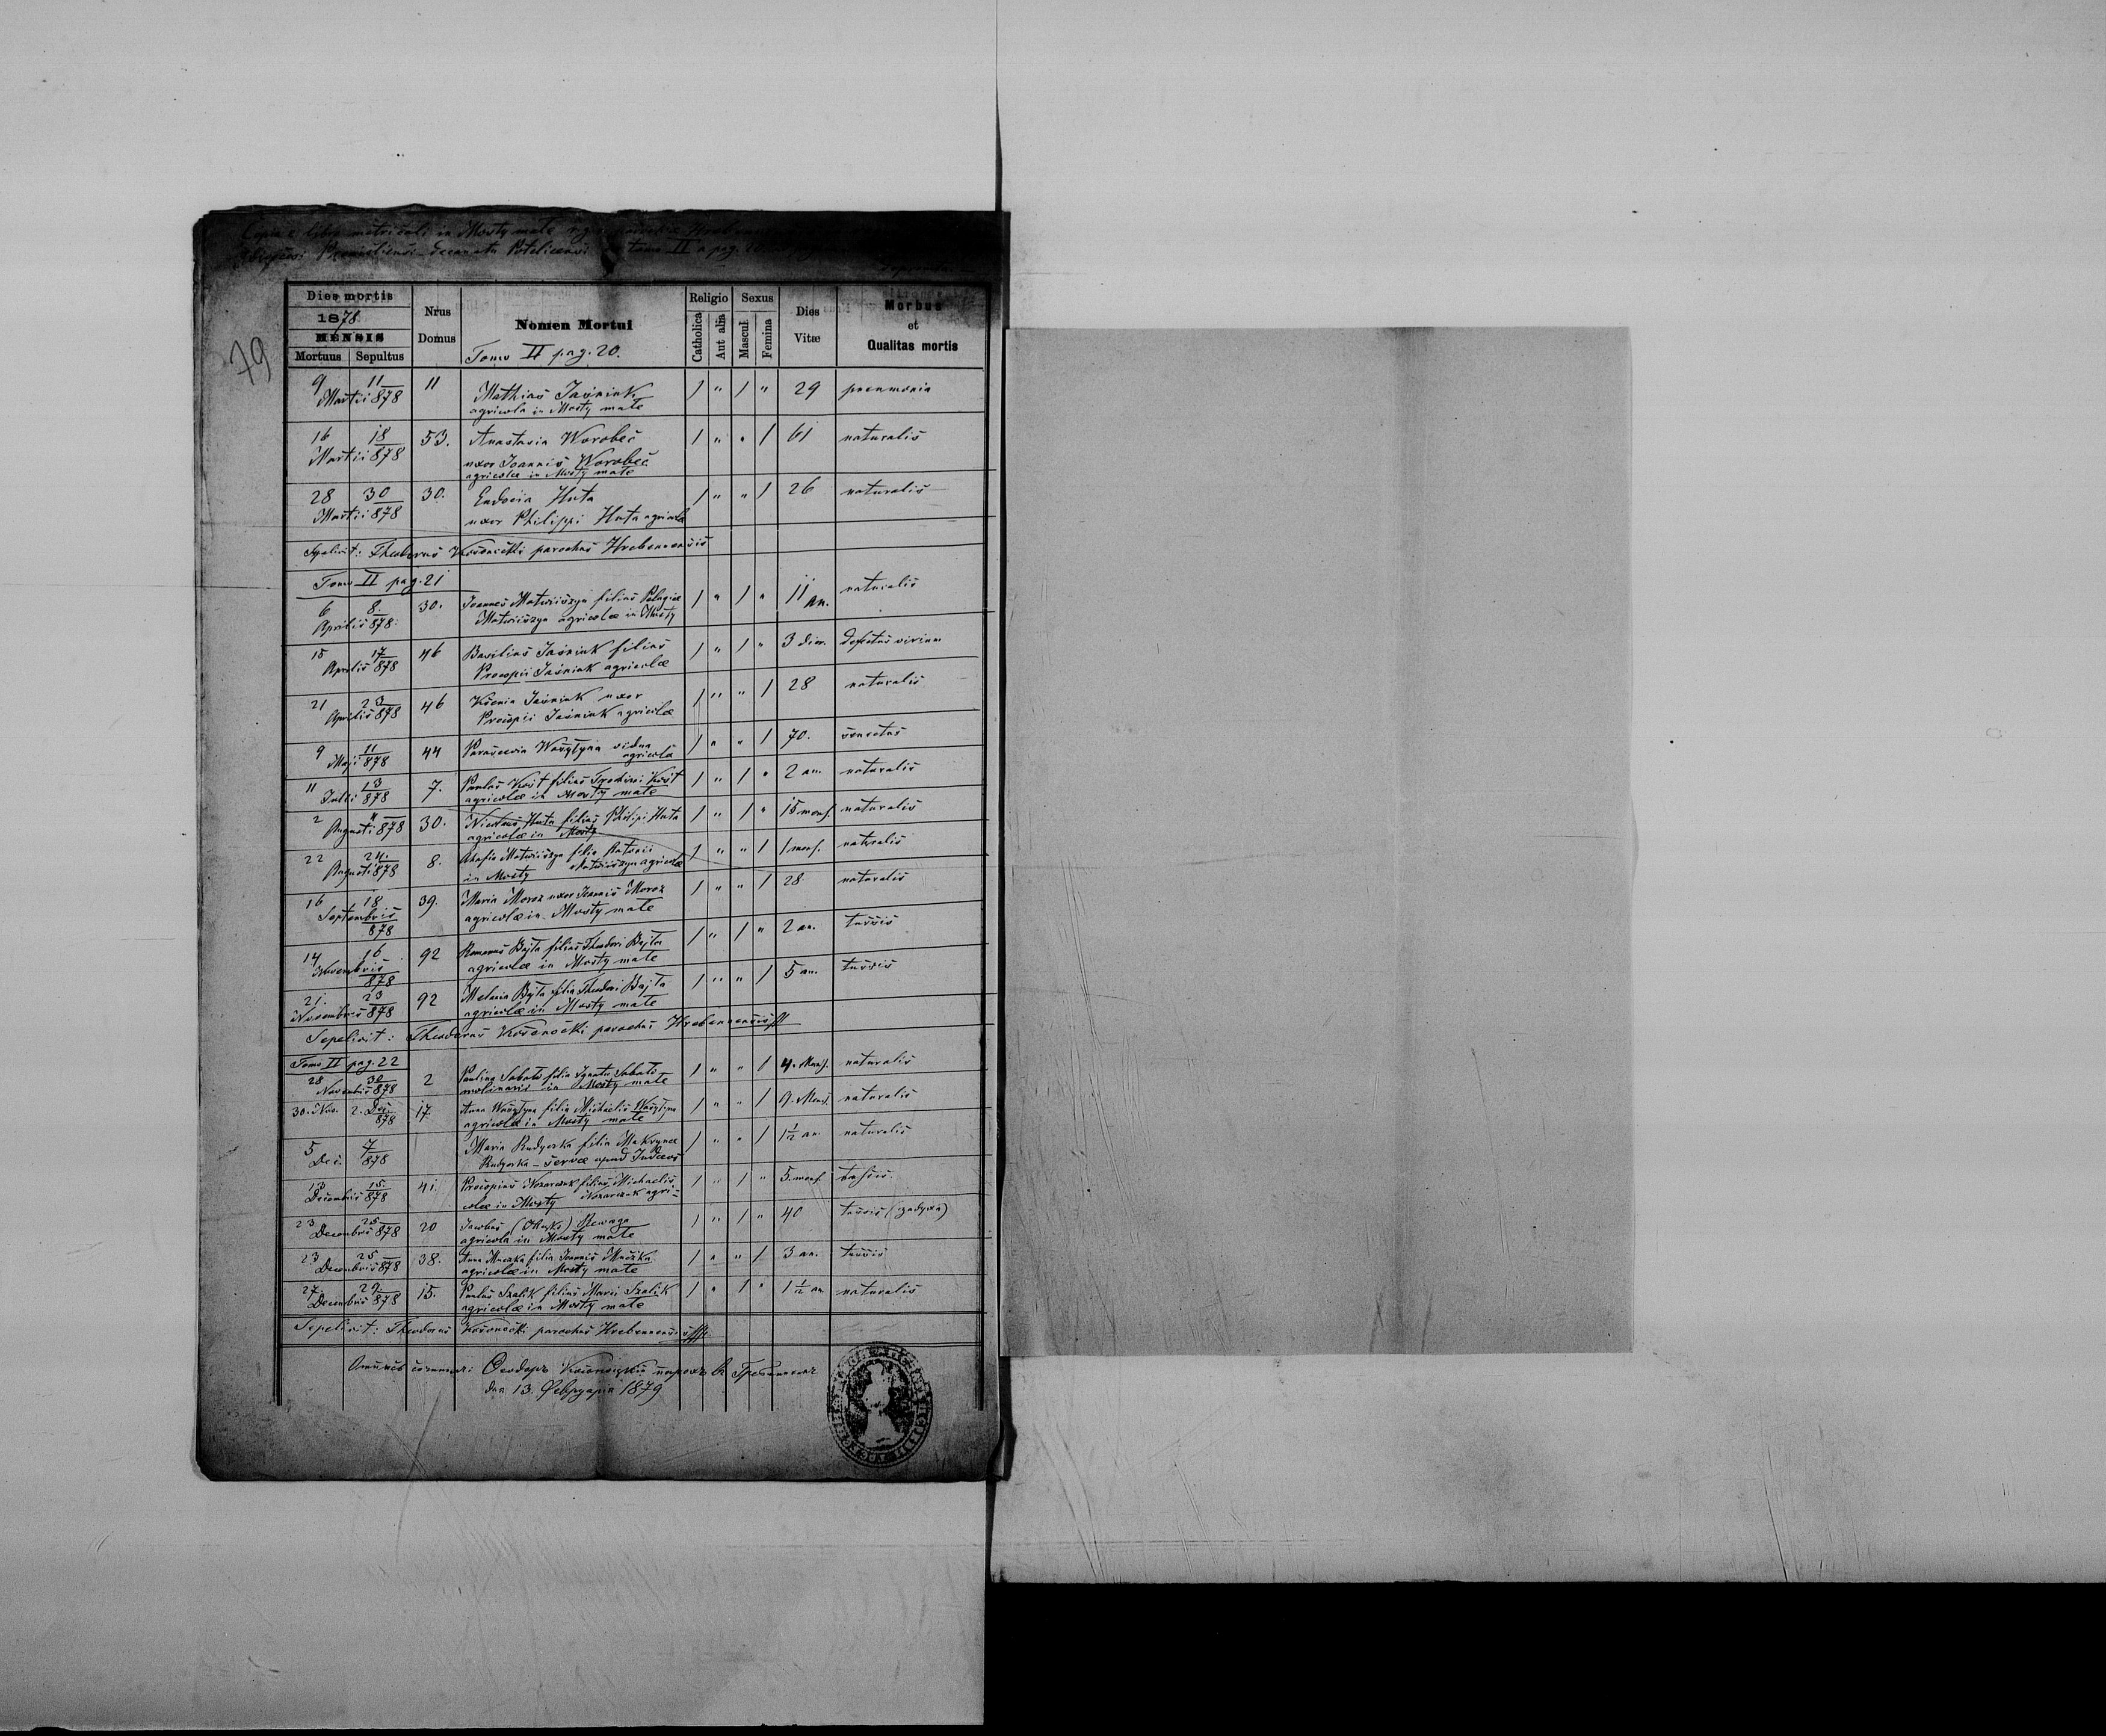 Copia e libro metricali in Mosty małe r. g. parochiae Hrebenne
Dioecesi Premisliensi decanatu Potelicensi tomo II a pag. 20
79
Dies mortis
1878
MENSIS
Mortuus Sepultus
Nrus Domus
Nomen Mortui
Tomo II pag. 20.
Religio
Catholica Aut alia
Sexus
Mascul. Femina
Dies Vitæ
Morbus et Qualitas mortis
9 11 Martii 878 11 Mathias Jaśniuk 1 " 1 " 29 pneumonia
agricola in Mosty małe
16 18 Martii 878 53. Anastasia Worobeć 1 " " 1 61 naturalis
uxor Joannis Worobeć
agricolæ in Mosty małe
28 30 Martii 878 30. Eudocia Huta 1 " " 1 26 naturalis
uxor Philippi Huta agricola
Sepelivit: Theodorus Kosonocki parochus Hrebennensis
Tomo II pag. 21
6 8. Aprilis 878. 30. Joannes Matwiiszyn filius Pelagiæ 1 " 1 " 11 an. naturalis
Matwiiszyn agricolæ in Mosty
15 17 Aprilis 878 46 Basilius Jaśniuk filius 1 " 1 " 3 dier. defectus virium
Procopii Jaśniuk agricolæ
21 23 Aprilis 878 46 Ksenia Jaśniuk uxor 1 " " 1 28 naturalis
Procopii Jaśniuk agricolæ
9 11 Maji 878 44 Parascevia Waszyna vidua 1 " " 1 70. senectus
agricola
11 13 Julii 878 7. Paulus Kost filius Kost 1 " 1 " 2 an. naturalis
agricolæ in Mosty małe
2 Augusti 878 30. Nicolaus Huta filius Philipi Huta 1 " 1 " 15 mens. naturalis
agricolæ in Mosty
22 24. Augusti 878 8. Matwiiszyn filia 1 " " 1 1 mens. naturalis
in Mosty Matwiiszyn agricolæ
16 18 Septembris 878 39. Maria Moroz uxor Joannis Moroz 1 " " 1 28 naturalis
agricolæ in Mosty małe
14 16 Novembris 878 92 Romanus Bajta filius Theodori Bajta 1 " 1 " 2 an. tussis
agricolæ in Mosty małe
21. 23 Novembris 878 92 Melania Bajta filia Theodori Bajta 1 " " 1 5 an. tussis
agricolæ in Mosty małe
Sepelivit: Theodorus Kosonocki parochus Hrebennensis
Tomo II pag. 22
28 30 Novembris 878 2 Paulina Sabat filia Ignatii Sabat 1 " " 1 4. Mens. naturalis
molinarii in Mosty małe
30. Nov. 2. Dec. 878 17. Anna filia Michaelis 1 " " 1 9. Mens. naturalis
agricolæ in Mosty małe
5 7 Dec. 878 Maria Rudyoska filia Makrynæ 1 " " 1 1 1/2 an. naturalis
Rudyoska – servæ apud Judæos
13 15 Decembris 878 41. Procopius Nazarczuk filius Michaelis 1 " 1 " 5. mens. tussis.
Nazarczuk agri=
colæ in Mosty
23 25 Decembris 878 20 Jacobus Rewaga 1 " 1 " 40 tussis
agricola in Mosty małe
23 25 Decembris 878 38. Anna Muczka filia Joannis Muczka 1 " " 1 3 an. tussis
agricolæ in Mosty małe
27. 29. Decembris 878 15. Paulus Szalik filius Marci Szalik 1 " 1 " 1 1/2 an. naturalis
agricolæ in Mosty małe
Sepelivit: Theodorus Kosonocki parochus Hrebennensis
Ѳеодоръ Косоноцкій парохъ в Гребенномъ
дня 13. Февруарія 1879